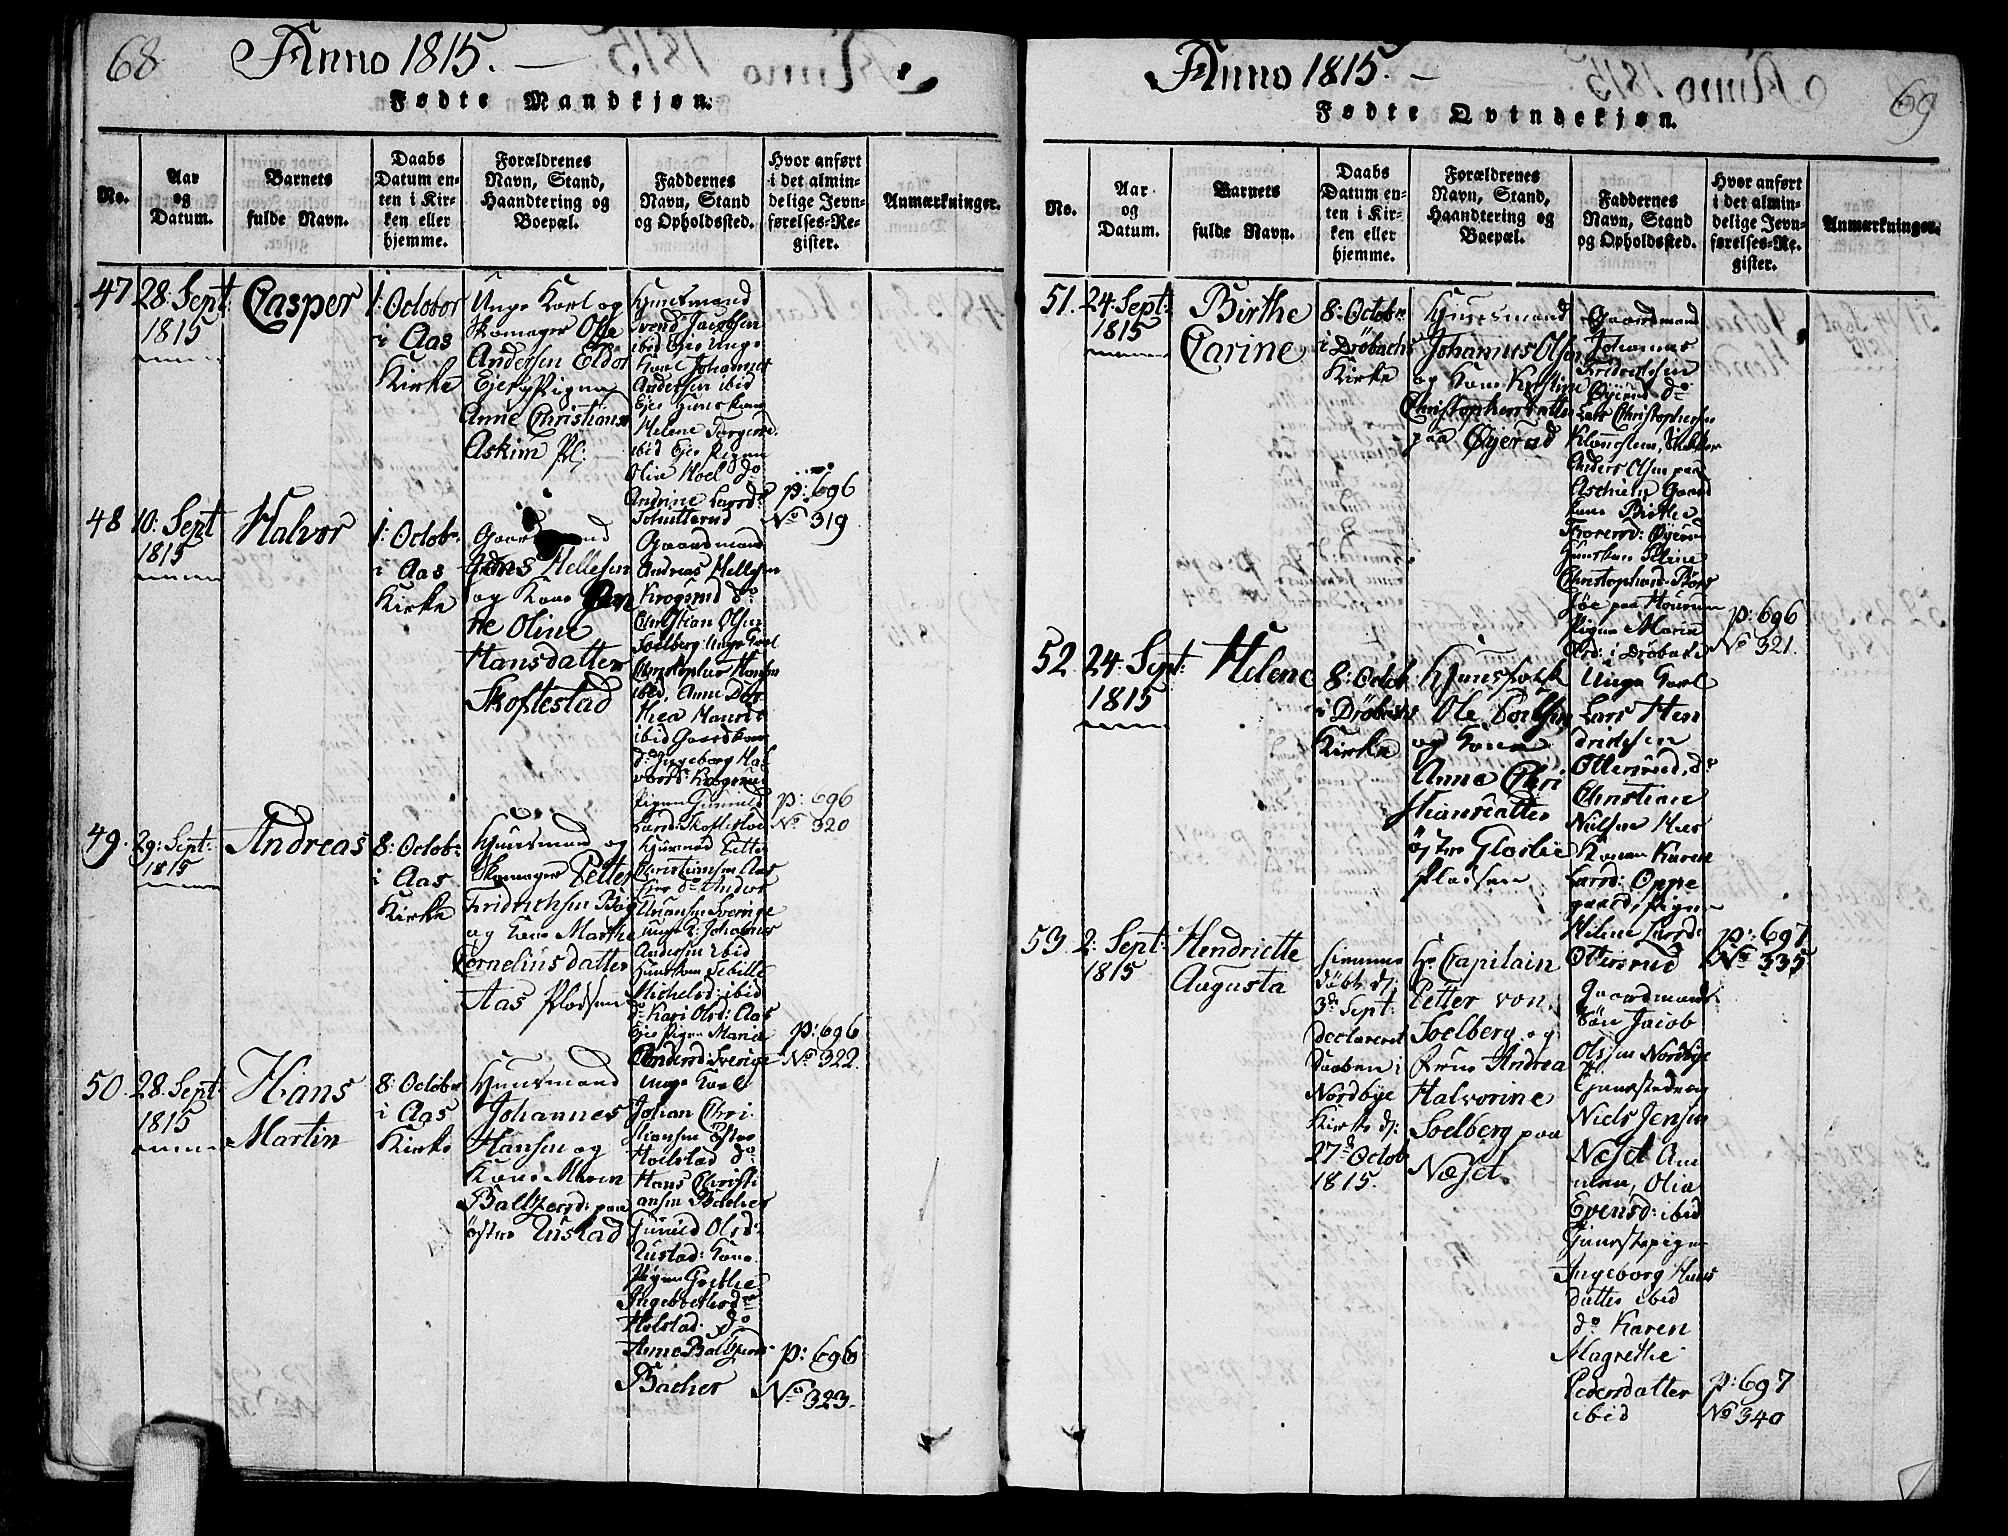 68
Anno 1815.
Fødte Mandkjøn.
No.
Aar
og
Datum.
Barnets
fulde Navn.
Daabs
Datum en-
ten i Kir-
ken eller
hjemme.
Forældrenes
Navn, Stand,
Haandtering og
Boepæl.
Faddernes
Navn, Stand
og Opholdssted.
Hvor anført
i det almin-
delige Jevn-
førelses-Re-
gister.
Anmærkninger.
47
28 Sept:
1815
Casper
1: October
i Aas
Kirke
Unge Karl og
Skomager Ole
Andersen Eldor
Ejer Pigen
Anne Christians
Askim Pl:
Huusmand
Svend Jacobsen
ibid Ejer Unge
Karl Johannes
Andersen ibid
Ejer Huuskone
Helene Torgers
ibid Ejer Pigen
Olia Moel do
Andrine Larsd:
p: 696
No 319
48
10: Sept
1815
Halvor
1: Octobr:
i Aas
Kirke
Jens Hellesen
og Kone Dor
the Oline
Hansdatter
Skoftestad
Gaardmand
Andreas Hellesen
Krogsrud do
Christian Olsen
Solberg Unge Karl
Christopher Hansen
ibid, Anne Dor
thea Mauri
ibid Gaardkone
do Ingeborg Hal
vorsd: Krogsrud
Pigen Gunnild
Larsd: Skoftestad
p: 696
No 320
49.
29: Sept:
1815
Andreas
8: Octobr:
i Aas
Kirke
Huusmand og
Skomager Petter
Fridrichsen
og Kone Marthe
Cornelius datter
Aas Pladsen
Huusmd Petter
Christiansen Aas
Ejer do Anders
Sverige
unge K: Johannes
Andersen ibid
Huuskone Sebille
Michelsd: ibid
do Kari Olsd: Aas
Ejer Pigen Marie
Andersd: Sverige
p: 696
No 322.
50.
28. Sept
1815
Hans
Martin
8: October
i Aas
Kirke
Huusmand
Johannes
Hansen og
Kone Maren
Baltzersd: paa
østre Rustad
Unge Karl
Johan Chri
stiansen østre
Holstad do
Hans Christi
ansen
Gunild Olsd:
Rustad: Kone
Pigen Grethe
Ingebrethsd:
Holstad: do
Anne Baltzersd
Bacher
p: 696
No 323.
69
Anno 1815.
Fødte Qvindekjøn.
No.
Aar
og
Datum.
Barnets
fulde Navn.
Daabs
Datum en-
ten i Kir-
ken eller
hjemme.
Forældrenes
Navn, Stand,
Haandtering og
Boepæl.
Faddernes
Navn, Stand
og Opholdssted.
Hvor anført
i det almin-
delige Jevn-
førelses-Re-
gister.
Anmærkninger.
51.
24. Sept:
1815
Birthe
Carine
8: Octobr:
i Drøbachs
Kirke
Huusmand
Johannes Olsen
og Kone Kirstine
Christophersdatter
paa Øyerud
Gaardmand
Johannes
Fredriksen
Øyerud do
Lars Christophersen
Anders Olsen paa
Aschiem Gaard
kone Birthe
Huuskone Eline
Christophersd:
Pigen Marie
Olsd: i Drøbak
p: 696
No 321.
52
24: Sept:
1815
Helene
8: Octob:
i Drøbachs
Kirke
Huusfolk
Ole Poulsen
og Kone
Anne Chri
stiansdatter
østre Glaslie
pladsen
Unge Karl
Lars Hen
drichsen
Ottersrud, do
Christian
Nielsen
Konen Karen
Larsd: Oppe
gaard, Pigen
Helene Larsd:
Ottersrud
p: 697
No 335
53
2: Sept:
1815
Hendriette
Augusta
hiemme
døbt d:
3de Sept:
declareret
Daaben i
Nordbye
Kirke d:
27de Octob
1815.
Hr Capitain
Petter von
Soelberg og
Frue Andrea
Halvorine
Soelberg paa
Næset.
Gaardmands
Søn Jacob
Olsen Nordbye
Pl.
Niels Jensen
Næset Am
men, Olia
Evensd: ibid
Tjenestepigen
Ingeborg Hans
datter ibid
do Karen
Magrethe
Pedersdatter
ibid
p: 697
No 340